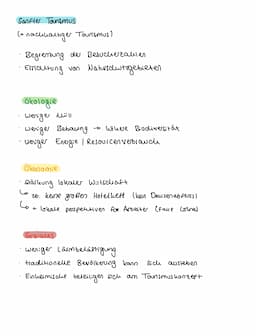 Sanfter Tourismus
(+ nachhaltiger Tourismus)
· Begrenzung der Besucherzahlen
· Einrichtung von Naturschutzgebieten
Ökologie
· weniger Müll
· weniger Bebauung → höhere Biodiversität
· weniger Energie / Ressourcenverbrauch
Ökonomie
· Stärkung lokaler Wirtschaft
↳ zB. keine großen Hotelketten (kein
↳ + lokale Perspektiven für Arbeiter (Faire Löhne)
Soziales
· weniger Lärmbelästigung
· traditionelle Bevölkerung kann sich ausleben
· Einheimische beteiligen sich am Tourismuskonzept